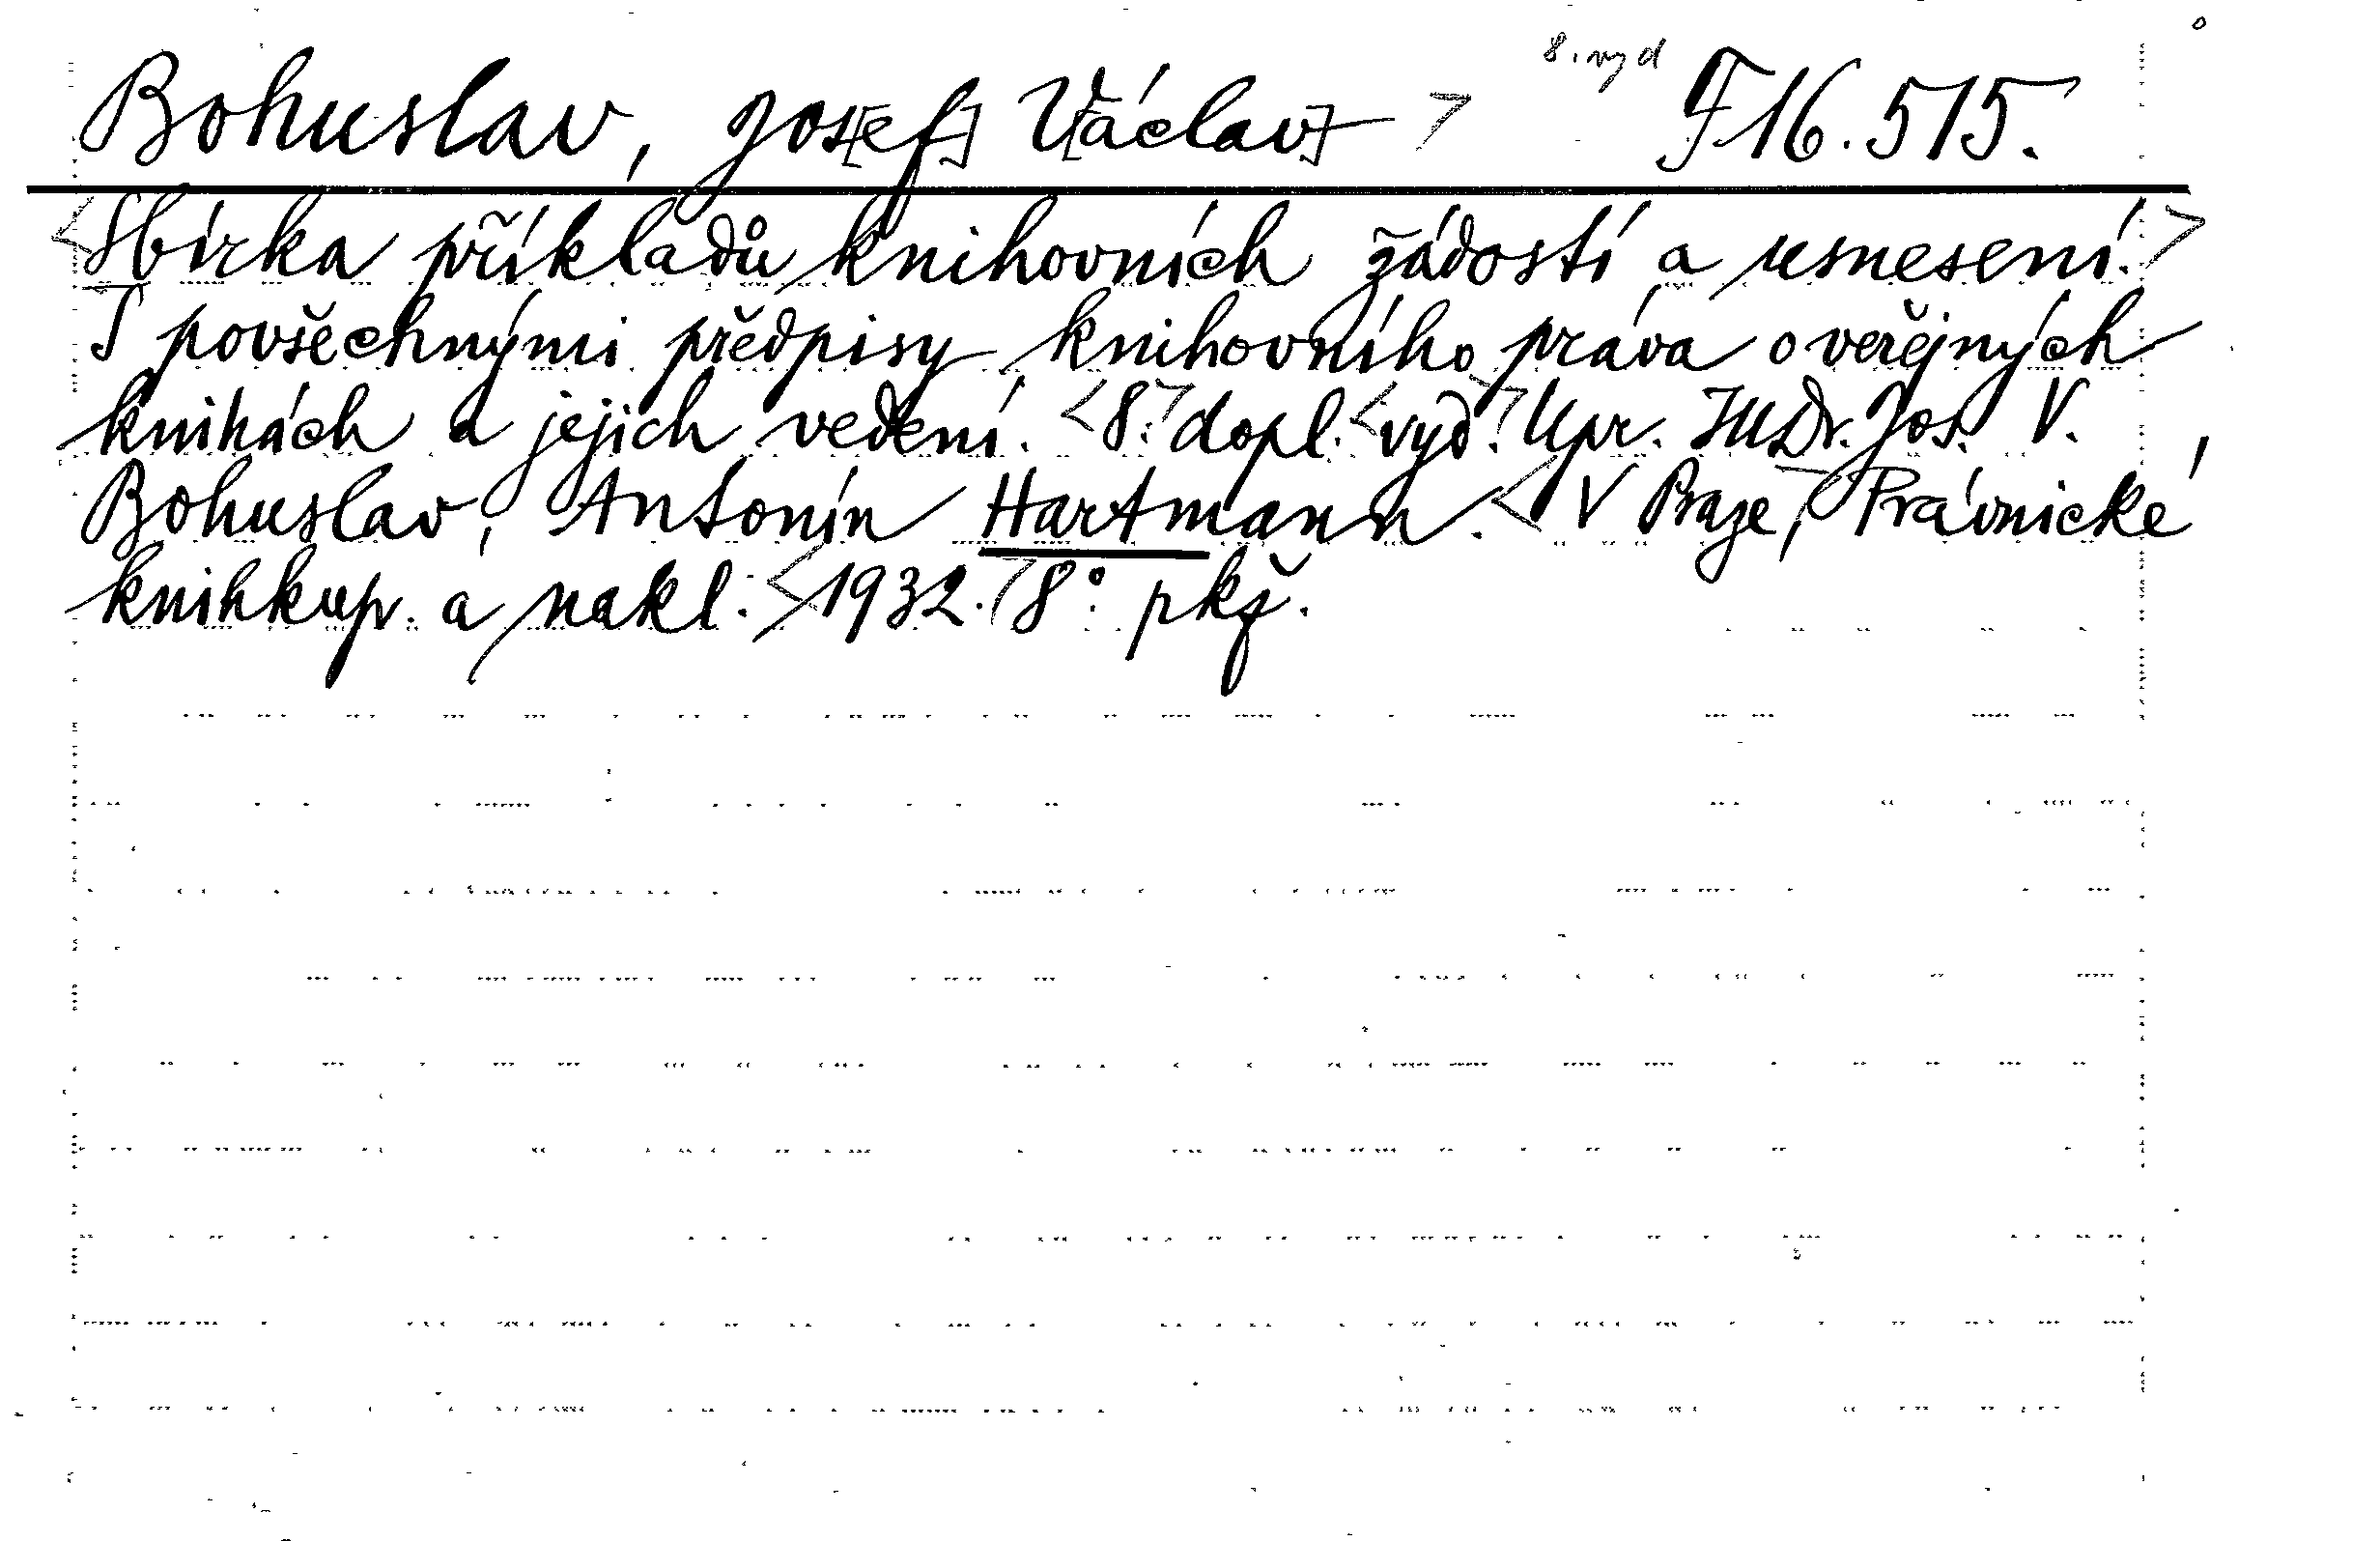 8. vyd
Bohuslav, Jos[ef] V[áclav] > F 16.515.
<Sbírka příkladů knihovních žádostí a usnesení.>
S povšechnými předpisy knihovního práva o veřejných
knihách a jejich vedení. <8.> dopl. <vyd.> Upr. JUDr. Jos. V.
Bohuslav, Antonín Hartmann. <V Praze,> Právnické
knihkup. a nakl. <1932.> 8° pkž.